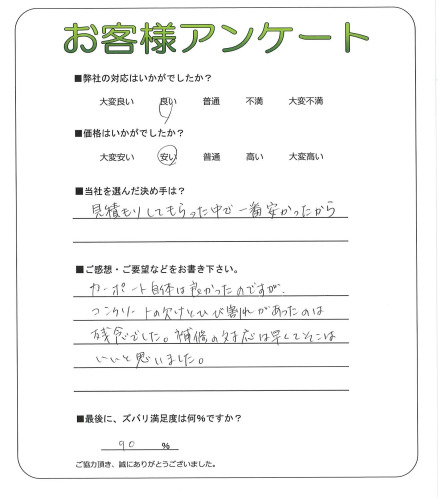 お客様アンケート
■弊社の対応はいかがでしたか?
大変良い 良い 普通 不満 大変不満
■価格はいかがでしたか?
大変安い 安い 普通 高い 大変高い
■当社を選んだ決め手は?
見積もりしてもらった中で一番安かったから
■ご感想・ご要望などをお書き下さい。
カーポート自体は良かったのですが、
コンクリートの欠けとひび割れがあったのは
残念でした。補修の対応は早くてそこは
いいと思いました。
■最後に、ズバリ満足度は何%ですか?
90 %
ご協力頂き、誠にありがとうございました。